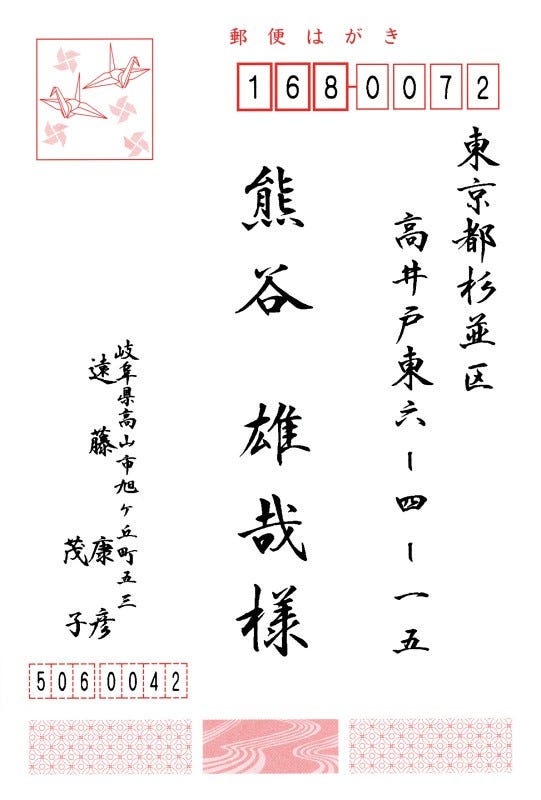 郵便はがき
168-0072
東京都杉並区
高井戸東六ー四ー一五
熊谷 雄哉様
岐阜県高山市旭ヶ丘町五三
遠藤 康彦
茂子
5060042